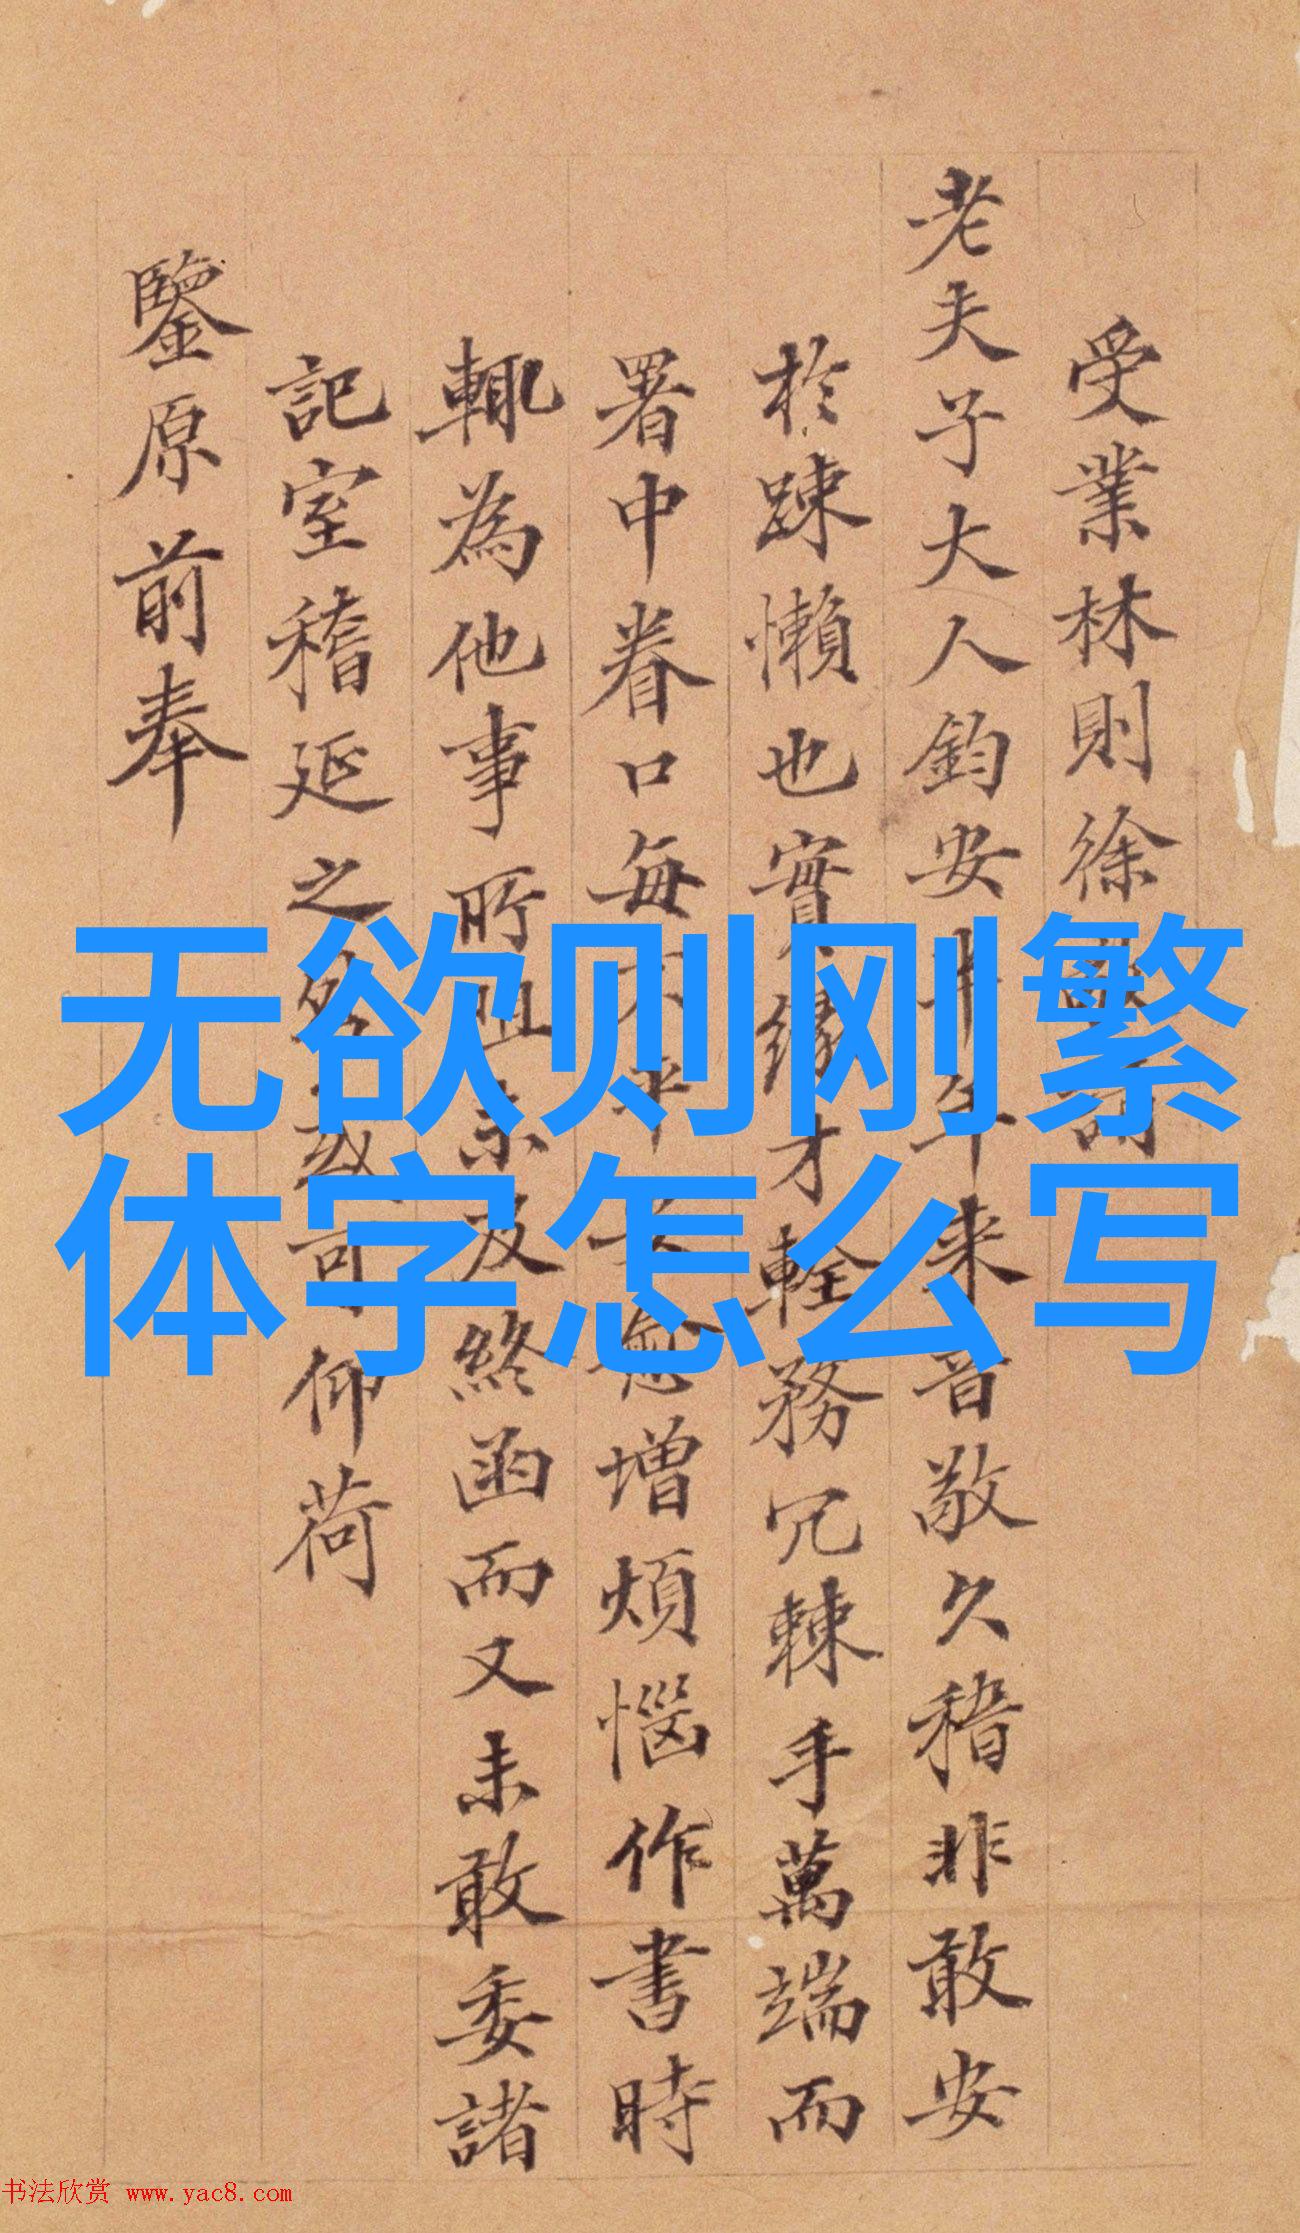 无欲则刚繁
体字怎么写
受業林則徐
老夫子大人鈞安半年来音敬久稽非敢安
於踈懶也實緣才輇務冗棘手萬端而
署中眷口每增煩惱作書時
輒為他事所阻未及終函而又未敢委諸
記室稽延之仰荷
鑒原前奉
书法欣赏 www.yac8.com